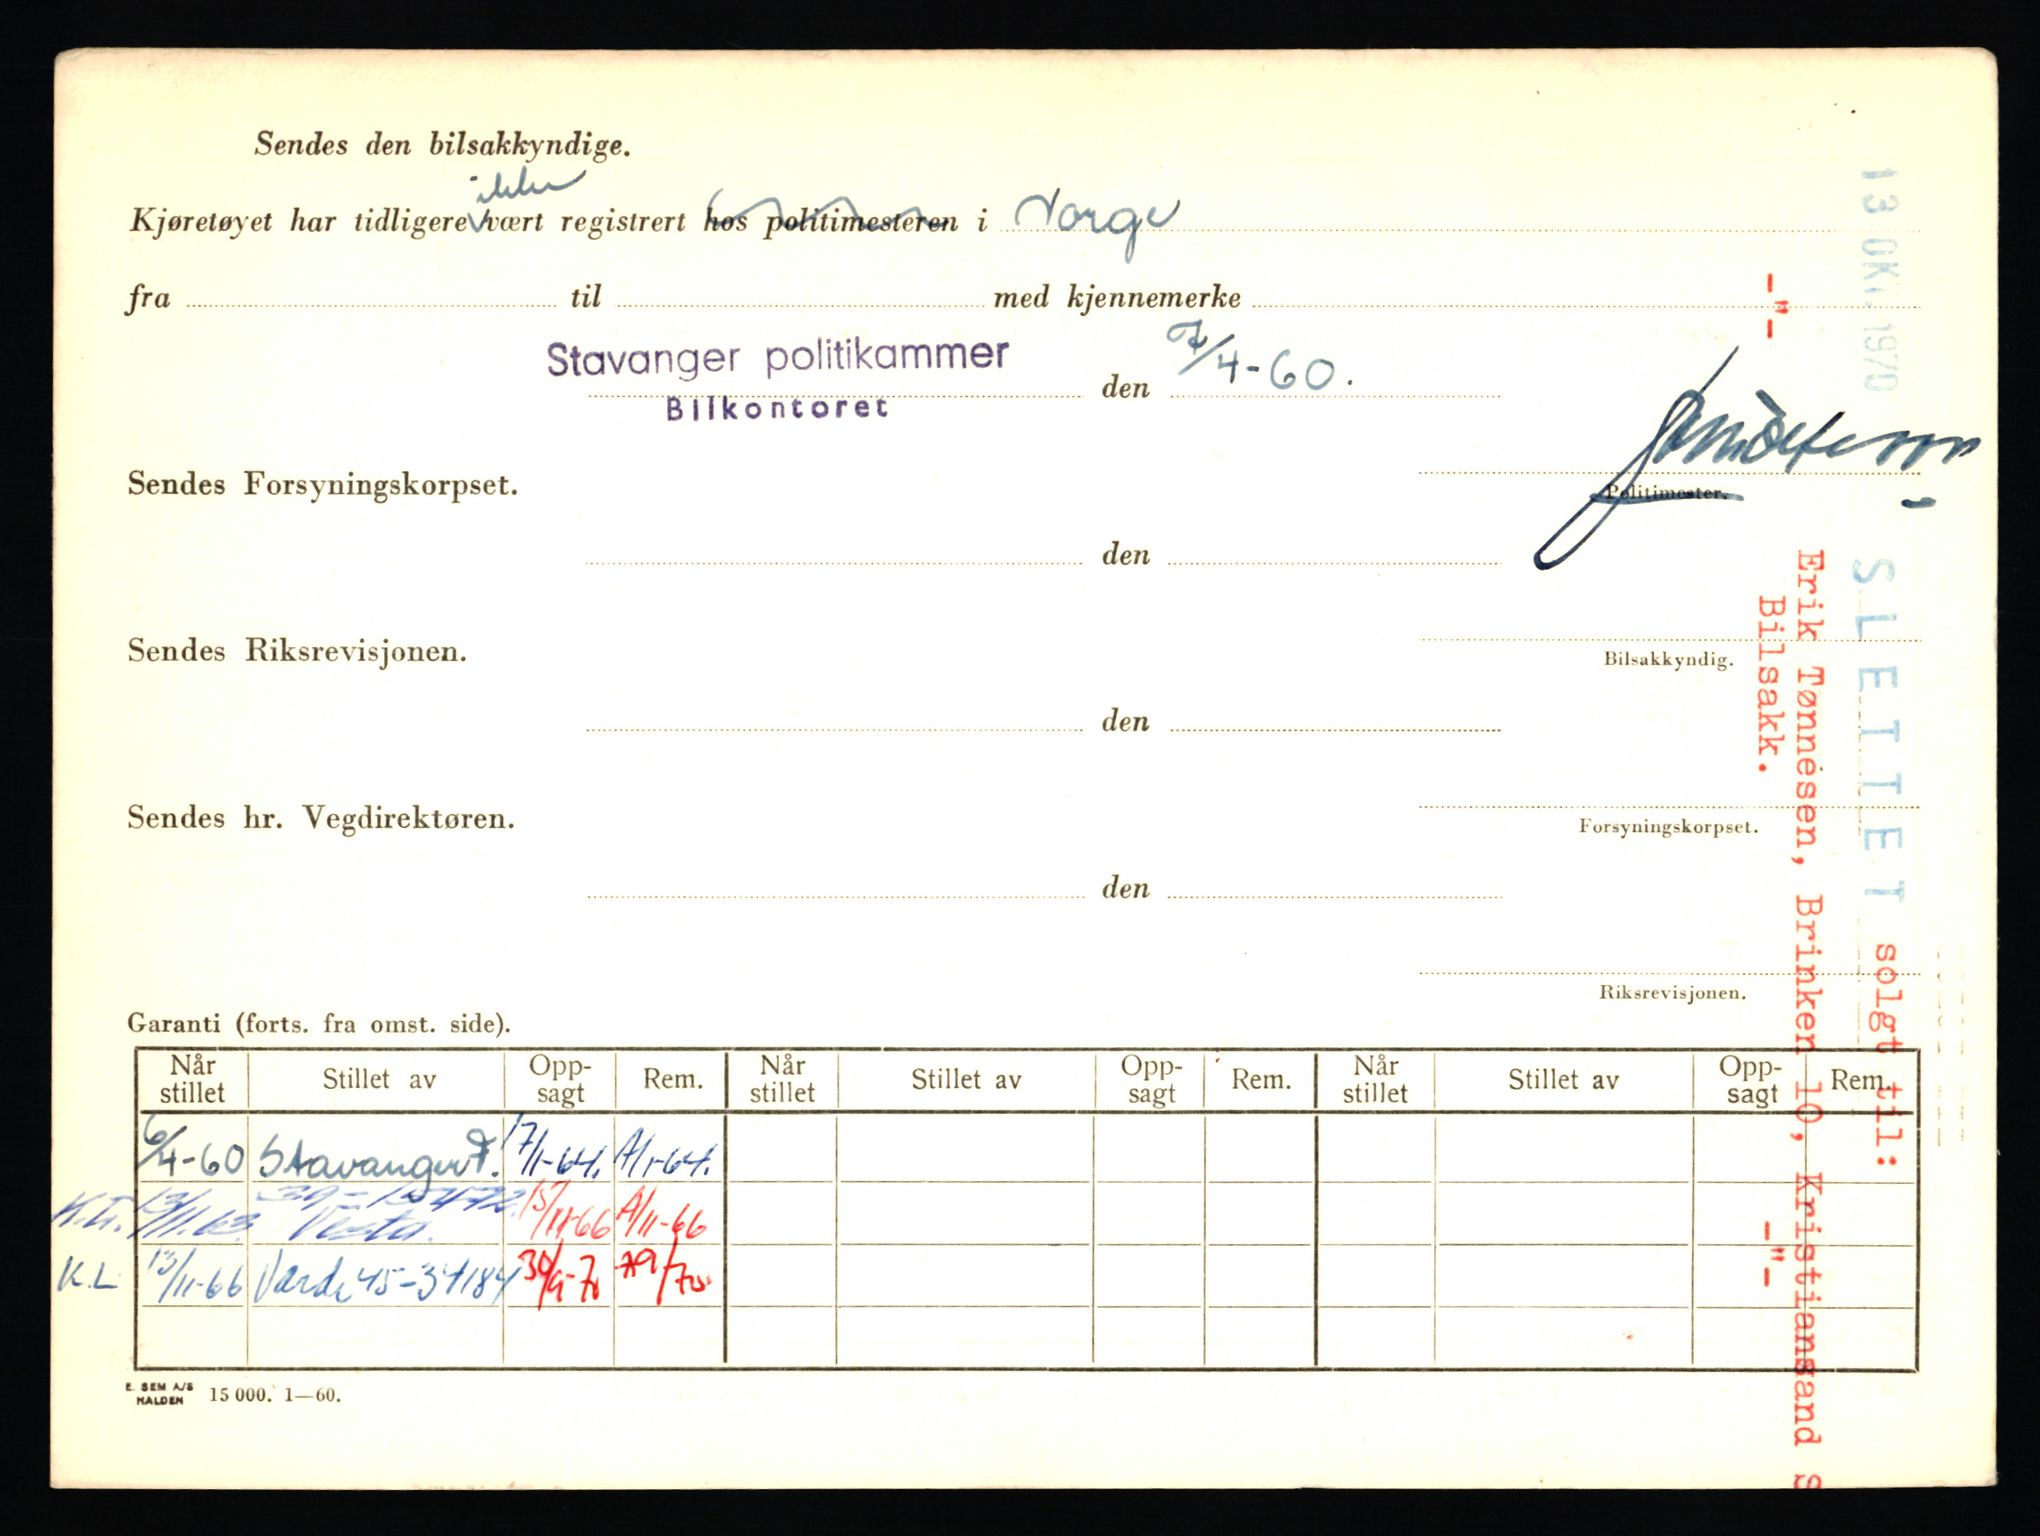 Sendes den bilsakkyndige.
ikke
Kjøretøyet har tidligere vært registrert hos politimesteren i Norge
fra til med kjennemerke
Stavanger politikammer
Bilkontoret
den 7/4-60.
Sendes Forsyningskorpset.
Politimester.
den
Sendes Riksrevisjonen.
Bilsakkyndig.
den
Sendes hr. Vegdirektøren.
Forsyningskorpset.
den
Riksrevisjonen.
Garanti (forts. fra omst. side).
Når stillet Stillet av Opp-sagt Rem. Når stillet Stillet av Opp-sagt Rem. Når stillet Stillet av Opp-sagt Rem.
6/4-60 Stavanger F. 17/1-64. A/1-64.
13/11.63. Vesta. 15/11-66 A/11-66
K.L 13/11-66 Varde 45-34184 30/9-70 A9/70
E. SEM A/S
HALDEN 15 000. 1—60.
13 OKT. 1970
SLETTET solgt til:
Erik Tønnesen, Brinken 10, Kristiansand S
Bilsakk.
-"- -"-